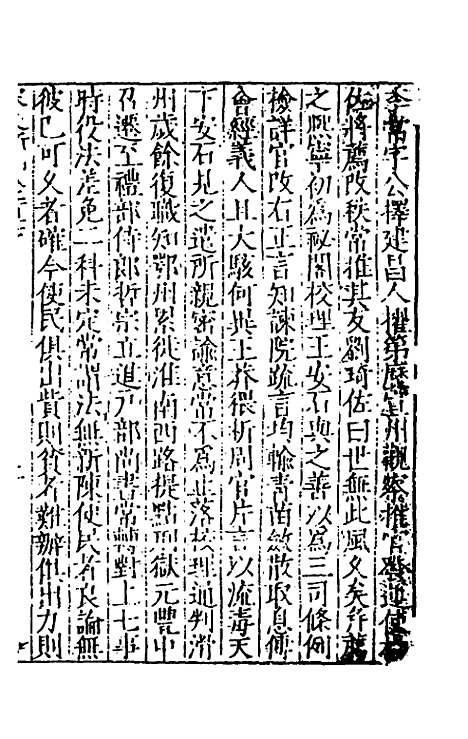 李常字公擇建昌人擢第歷宣州觀察推官發運使楊
佐將薦改秩常推其友劉琦佐曰世無此風久矣并薦
之熙寧初為祕閣校理王安石與之善以為三司條例
檢詳官改右正言知諫院疏言均輸青苗斂散取息傅
會經義人且大駭何異王莽猥析周官片言以流毒天
下安石見之遣所親密諭意常不為止落校理通判滑
州歲餘復職知鄂州累徙淮南西路提點刑獄元豐中
召還至禮部侍郎哲宗立進戶部尚書常轉對上七事
時役法差免二科未定常謂法無新陳使民者良論無
彼已可久者確今使民俱出貲則貧者難辦俱出力則